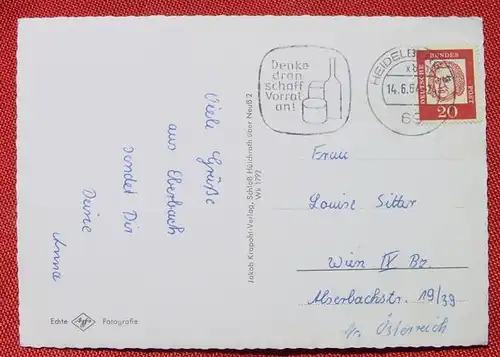 Denke
dran
schaff
Vorrat
an!
HEIDELB
14.6.64
69
DEUTSCHE BUNDESPOST
20
Viele Grüße
aus Eberbach
sendet Dir
Deine
Anna
Jakob Krapohl-Verlag, Schloß Hülchrath über Neuß 2
Wk 1792
Frau
Louise Sitter
Wien IX Bz.
Alserbachstr. 19/39
Österreich
Echte Agfa Fotografie